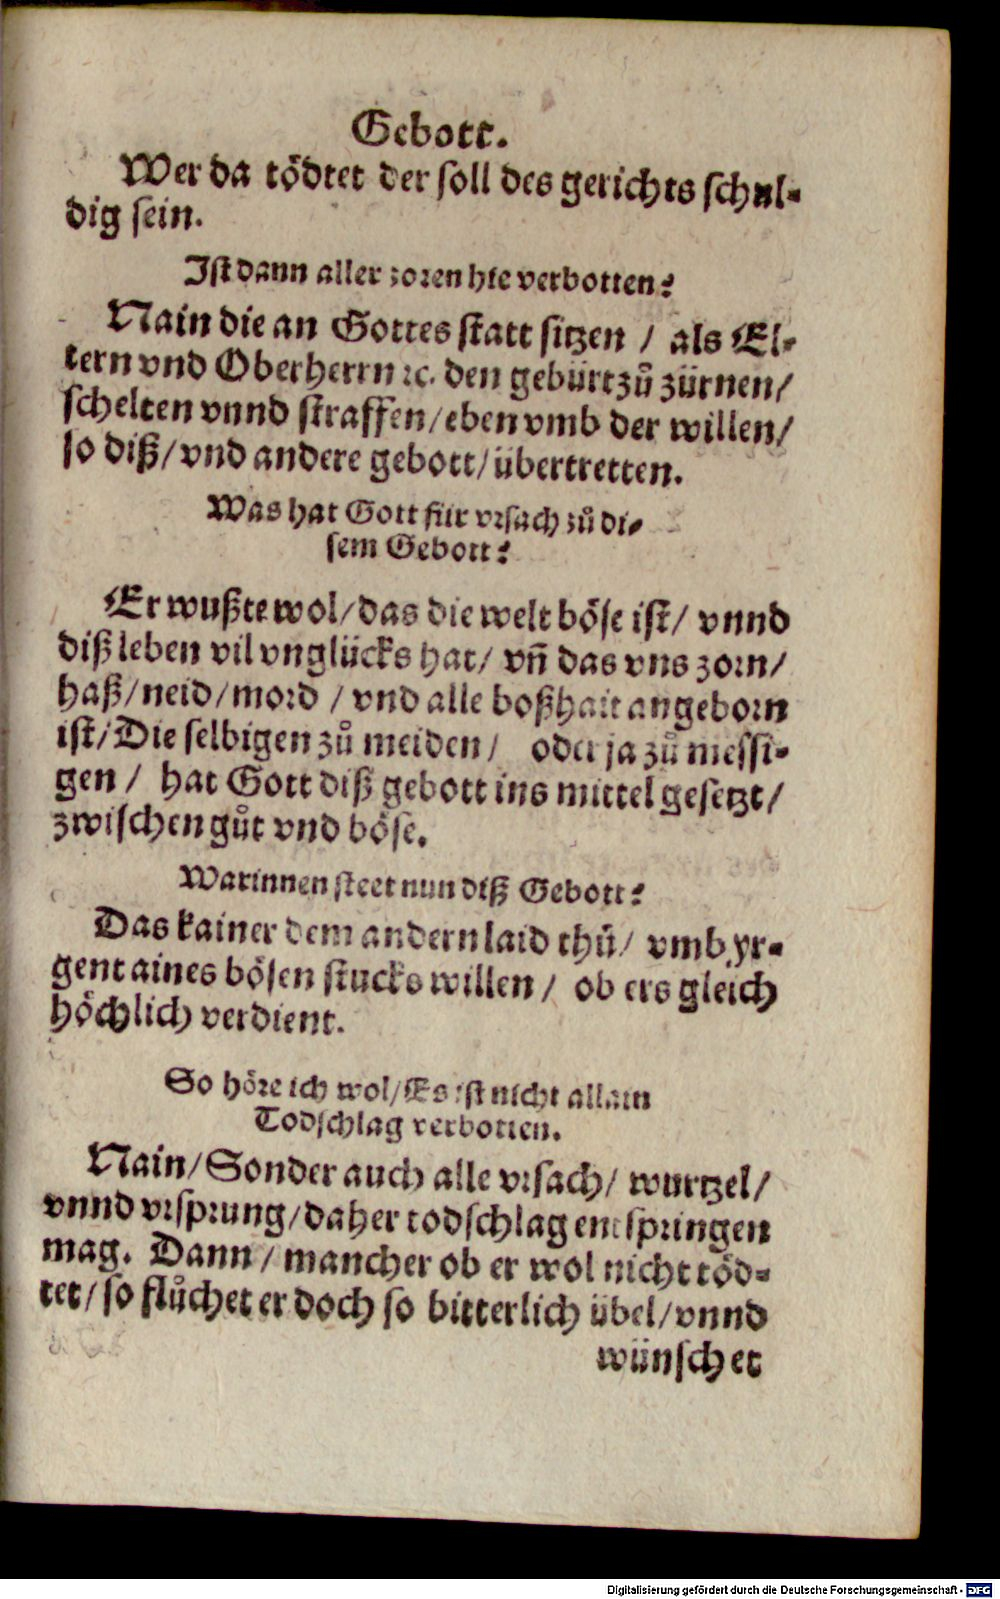 Gebott.
Wer da tödtet der soll des gerichts schul-
dig sein.
Ist dann aller zoren hie verbotten?
Nain die an Gottes statt sitzen / als El-
tern vnd Oberherrn ꝛc. den gebürt zů zürnen/
schelten vnnd straffen/eben vmb der willen/
so diß/vnd andere gebott/übertretten.
Was hat Gott für vrsach zů di-
sem Gebott?
Er wußte wol/das die welt böse ist/ vnnd
diß leben vil vnglücks hat/ vñ das vns zorn/
haß/neid/mord /vnd alle boßhait angeborn
ist/Die selbigen zů meiden/ oder ja zů messi-
gen / hat Gott diß gebott ins mittel gesetzt/
zwischen gůt vnd böse.
Warinnen steet nun diß Gebott?
Das kainer dem andern laid thů/ vmb yr-
gent aines bösen stucks willen/ ob ers gleich
höchlich verdient.
So höre ich wol/Es ist nicht allain
Todschlag verbotten.
Nain/Sonder auch alle vrsach/ wurtzel/
vnnd vrsprung/daher todschlag entspringen
mag. Dann/mancher ob er wol nicht töd-
tet/so flůchet er doch so bitterlich übel/vnnd
wünschet
Digitalisierung gefördert durch die Deutsche Forschungsgemeinschaft - DFG